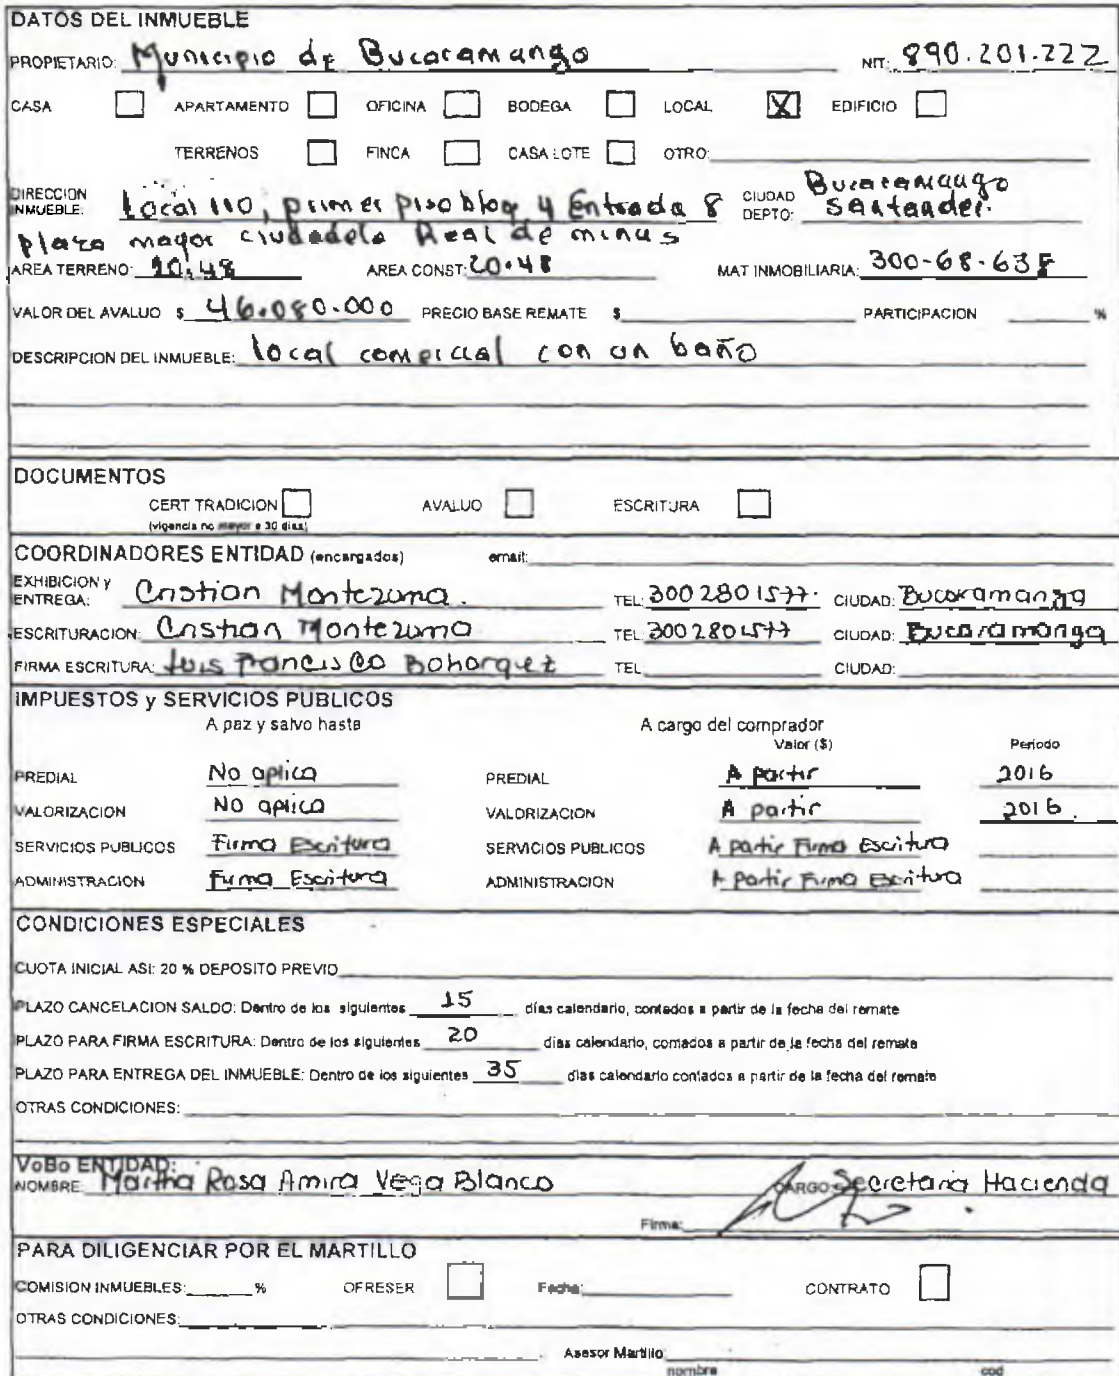 DATOS DEL INMUEBLE
PROPIETARIO: Municipio de Bucaramanga NIT: 890.201.222
CASA APARTAMENTO OFICINA BODEGA LOCAL X EDIFICIO
TERRENOS FINCA CASA LOTE OTRO:
DIRECCION INMUEBLE: Local 110, primer piso bloq 4 Entrada 8 CIUDAD DEPTO: Bucaramanga Santander.
plaza mayor ciudadela Real de minas
AREA TERRENO: 20.48 AREA CONST: 20.48 MAT INMOBILIARIA: 300-68-63
VALOR DEL AVALUO $ 46.080.000 PRECIO BASE REMATE $ PARTICIPACION %
DESCRIPCION DEL INMUEBLE: local comercial con un baño
DOCUMENTOS
CERT TRADICION AVALUO ESCRITURA
(vigencia no mayor a 30 dias)
COORDINADORES ENTIDAD (encargados) email:
EXHIBICION y ENTREGA: Cristian Montezuma. TEL: 3002801577. CIUDAD: Bucaramanga
ESCRITURACION: Cristian Montezuma TEL: 3002801577 CIUDAD: Bucaramanga
FIRMA ESCRITURA: Luis Francisco Bohorquez TEL: CIUDAD:
IMPUESTOS y SERVICIOS PUBLICOS
A paz y salvo hasta A cargo del comprador
Valor ($) Periodo
PREDIAL No aplica PREDIAL A partir 2016
VALORIZACION No aplica VALORIZACION A partir 2016.
SERVICIOS PUBLICOS Firma Escritura SERVICIOS PUBLICOS A partir Firma Escritura
ADMINISTRACION Firma Escritura ADMINISTRACION A partir Firma Escritura
CONDICIONES ESPECIALES
CUOTA INICIAL ASI: 20 % DEPOSITO PREVIO
PLAZO CANCELACION SALDO: Dentro de los siguientes 15 días calendario, contados a partir de la fecha del remate
PLAZO PARA FIRMA ESCRITURA: Dentro de los siguientes 20 dias calendario, contados a partir de la fecha del remate
PLAZO PARA ENTREGA DEL INMUEBLE: Dentro de los siguientes 35 dias calendario contados a partir de la fecha del remate
OTRAS CONDICIONES:
VoBo ENTIDAD:
NOMBRE: Martha Rosa Amira Vega Blanco CARGO: Secretaria Hacienda
Firma:
PARA DILIGENCIAR POR EL MARTILLO
COMISION INMUEBLES: % OFRESER Fecha: CONTRATO
OTRAS CONDICIONES:
Asesor Martillo:
nombre cod